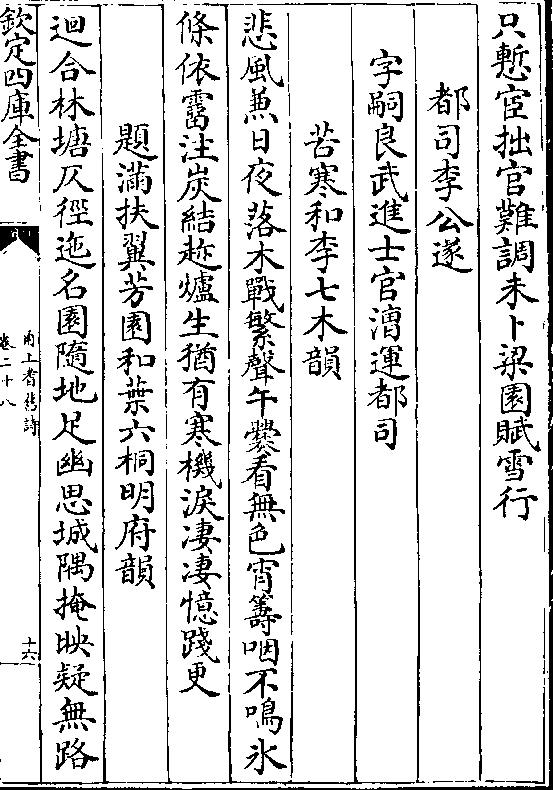 只慙宦拙官難調未卜梁園賦雪行
都司李公遂
字嗣良武進士官漕運都司
苦寒和李七木韻
悲風兼日夜落木戰繁聲午爨看無色宵籌咽不鳴氷
條依霤注炭結趂爐生猶有寒機淚凄凄憶踐更
題滿扶翼芳園和葉六桐明府韻
迴合林塘仄徑迤名園隨地足幽思城隅掩映疑無路
欽定四庫全書
甬上耆舊詩
卷二十八
十六